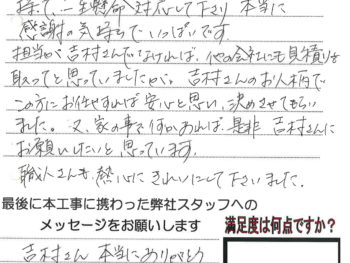 一生懸命対応して下さり 本当に
感謝の気持ちでいっぱいです。
担当が吉村さんでなければ、他の会社にも見積りを
取ってと思っていましたが、吉村さんのお人柄で
この方にお任せすれば安心と思い、決めさせてもらい
ました。又、家の事で何かあれば、是非 吉村さんに
お願いしたいと思っています。
職人さんも、熱心に きれいにして下さいました。
最後に本工事に携わった弊社スタッフへの
メッセージをお願いします
満足度は何点ですか?
吉村さん 本当にありがとう